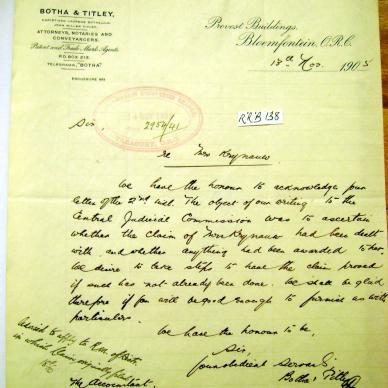 BOTHA & TITLEY,
CHRISTIAN LOURENS BOTHA, LL.B.
JOHN MILLER TITLEY.
ATTORNEYS, NOTARIES AND
CONVEYANCERS.
Patent and Trade Mark Agents.
P.O. BOX 213.
TELEGRAMS, "BOTHA"
Provost Buildings,
Bloemfontein, O.R.C.
13th Nov. 1905
2954/41
RRB 138
Sir,
re Mrs Krynauw
We have the honour to acknowledge your
letter of the 2nd inst. The object of our writing to the
Central Judicial Commission was to ascertain
whether the claim of Mrs Krynauw had been dealt
with, and whether anything had been awarded to her.
We desire to take steps to have the claim proved
if such has not already been done. We shall be glad
therefore if you will be good enough to furnish us with
particulars.
We have the honour to be,
Sir,
Your obedient servants,
Botha & Titley
Advised to apply to R.M. of
in which claim originally
The Accountant.